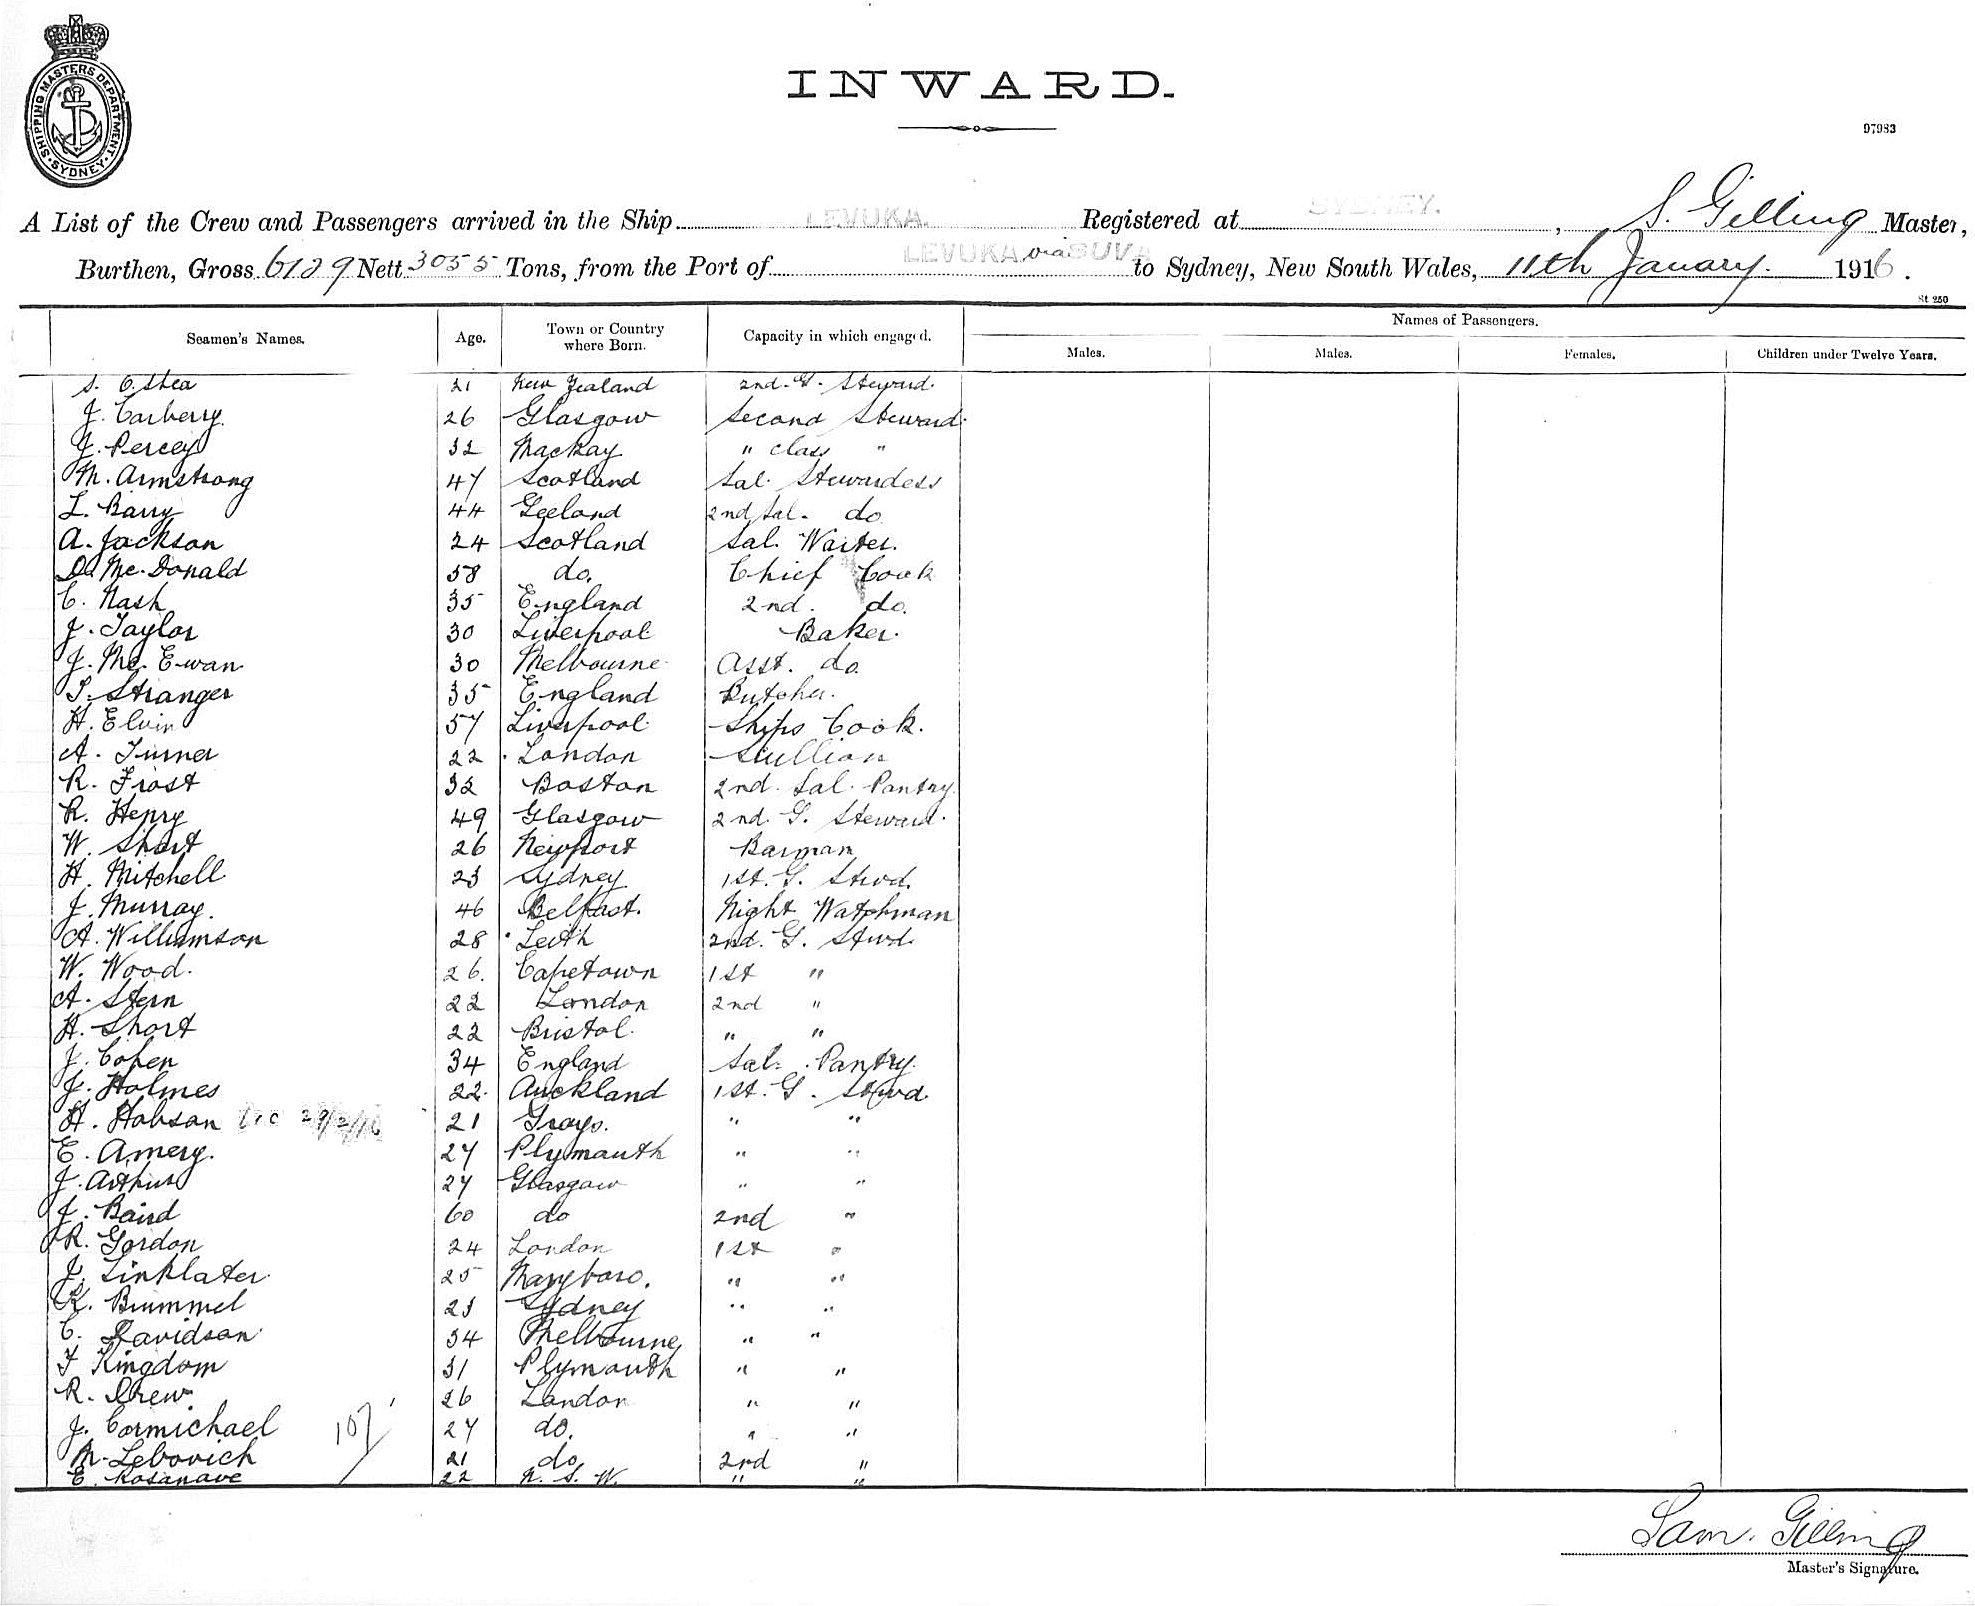 SHIPPING MASTERS DEPARTMENT · SYDNEY ·
INWARD.
97983
A List of the Crew and Passengers arrived in the Ship LEVUKA. Registered at SYDNEY. , S. Gilling Master,
Burthen, Gross 6129 Nett 3055 Tons, from the Port of LEVUKA via SUVA to Sydney, New South Wales, 11th January. 1916.
St 250
Seamen's Names. Age. Town or Country where Born. Capacity in which engaged. Names of Passengers.
Males. Males. Females. Children under Twelve Years.
S. O'Shea 21 New Zealand 2nd. G. Steward.
J. Carberry. 26 Glasgow Second Steward.
J. Percey 32 Mackay " class "
M. Armstrong 47 Scotland Sal. Stewardess
L. Barry 44 Geeland 2nd Sal. do
A. Jackson 24 Scotland Sal. Waiter.
D. Mc. Donald 58 do. Chief Cook
C. Nash 35 England 2nd. do.
J. Taylor 30 Liverpool Baker.
J. Mc. Ewan 30 Melbourne Asst. do.
S. Stranger 35 England Butcher.
H. Elvin 57 Liverpool Ships Cook.
A. Turner 22 London Scullion
R. Frost 32 Boston 2nd. Sal. Pantry.
R. Henry 49 Glasgow 2nd. G. Steward.
W. Short 26 Newport Barman
H. Mitchell 23 Sydney 1st. G. Stwd.
J. Murray. 46 Belfast. Night Watchman
A. Williamson 28 Leith 2nd. G. Stwd.
W. Wood. 26. Capetown 1st "
A. Stern 22 London 2nd "
H. Short 22 Bristol. " "
J. Cohen 34 England Sal. Pantry.
J. Holmes 22. Auckland 1st. G. Stwd.
H. Hobson 21 Grays. " "
E. Amery. 27 Plymouth " "
J. Arthur 27 Glasgow " "
J. Baird 60 do 2nd "
R. Gordon 24 London 1st "
J. Linklater 25 Maryboro. " "
K. Brummel 23 Sydney " "
C. Davidson 34 Melbourne, " "
F Kingdom 31 Plymouth " "
R. Drew. 26 London " "
J. Cormichael 27 do. " "
M. Lebovich 21 do 2nd "
E. Rosanave 22 N. S. W. " "
107
Sam. Gilling
Master's Signature.